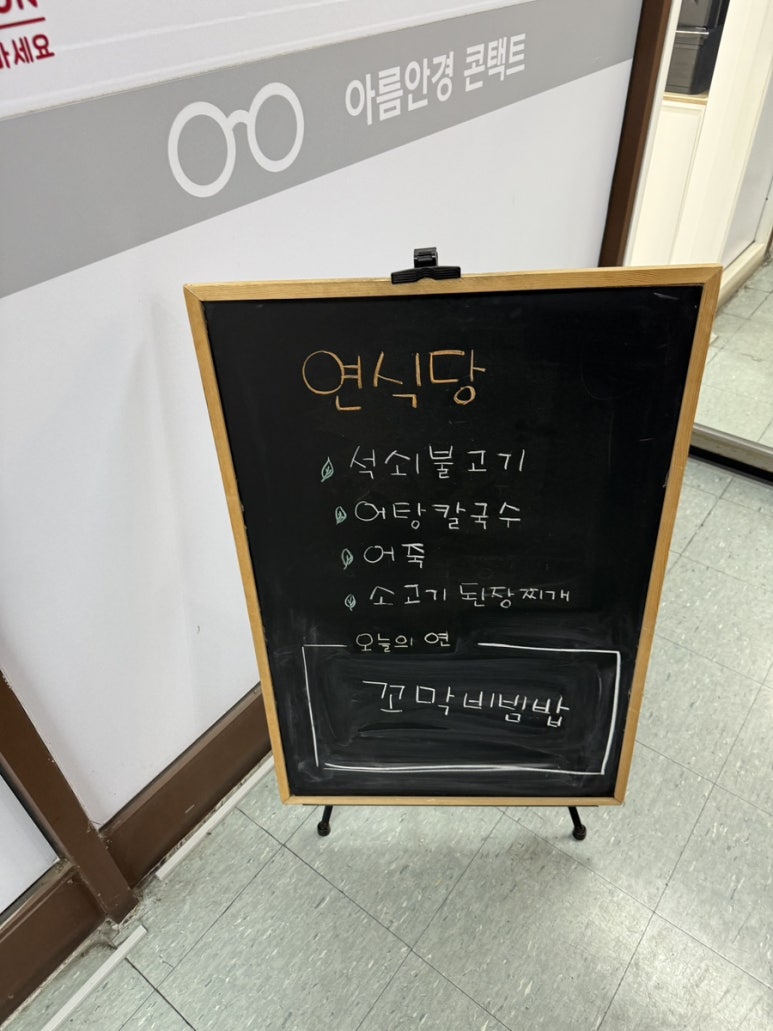 마세요
아름안경 콘택트
연식당
석쇠불고기
어탕칼국수
어죽
소고기 된장찌개
오늘의 연
꼬막비빔밥